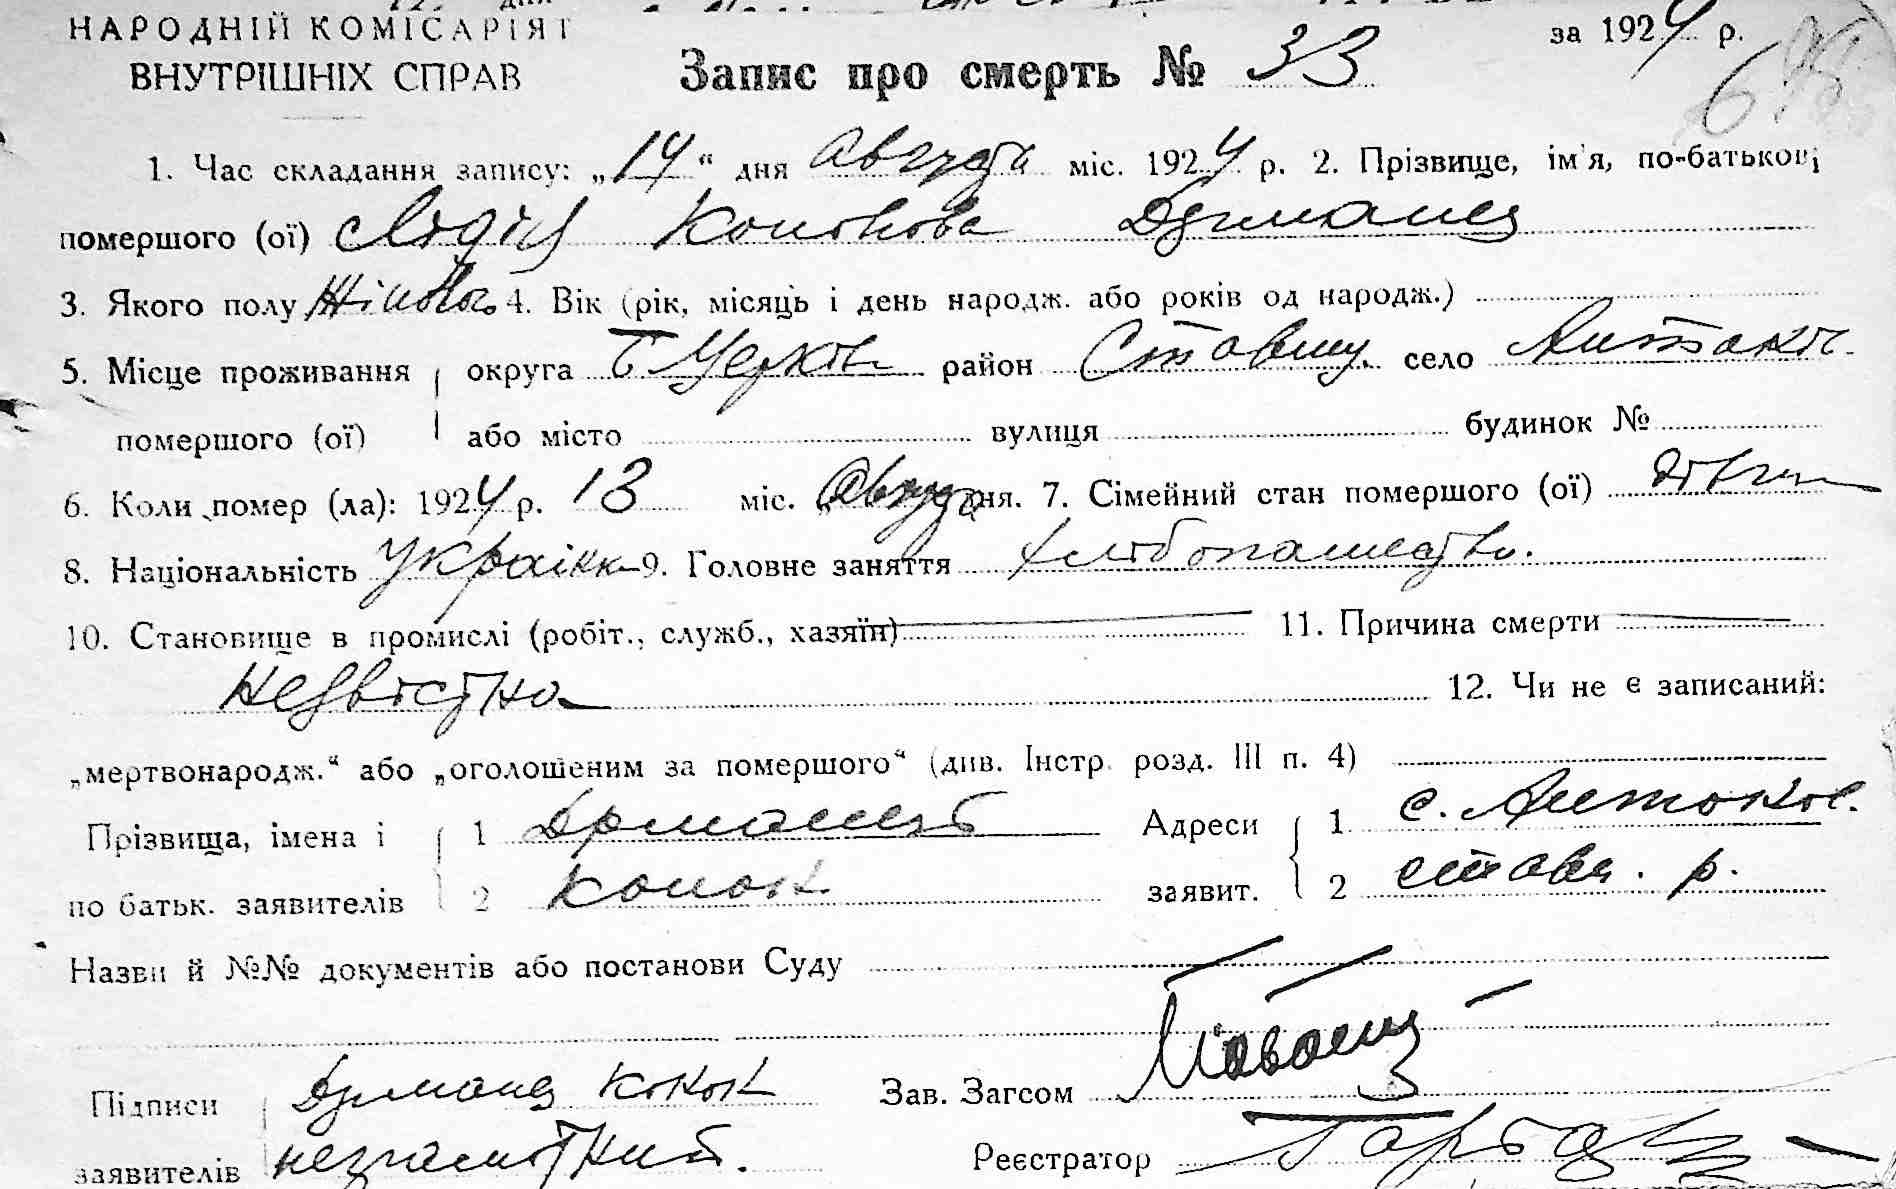 НАРОДНІЙ КОМІСАРІЯТ
ВНУТРІШНІХ СПРАВ
Запис про смерть № 33
за 1924 р.
1. Час складання запису: „14“ дня Августа міс. 1924 р. 2. Прізвище, ім'я, по-батькові
помершого (ої) Лідія Кононова Дурманец
3. Якого полу Жіноч. 4. Вік (рік, місяць і день народж. або років од народж.)
5. Місце проживання округа Б Церків район Ставищ. село
помершого (ої) або місто вулиця будинок №
6. Коли помер (ла): 1924 р. 13 міс. „Август дня. 7. Сімейний стан помершого (ої)
8. Національність Українк 9. Головне заняття хліборашество.
10. Становище в промислі (робіт., служб., хазяїн) 11. Причина смерти
Незвістна 12. Чи не є записаний:
„мертвонародж.“ або „оголошеним за помершого“ (див. Інстр. розд. III п. 4)
Прізвища, імена і 1 Дурманец Адреси 1 с.
по батьк. заявителів 2 Конон заявит. 2 став. р.
Назви й №№ документів або постанови Суду
Підписи Дурманец Конон Зав. Загсом
заявителів неграмотний. Реєстратор